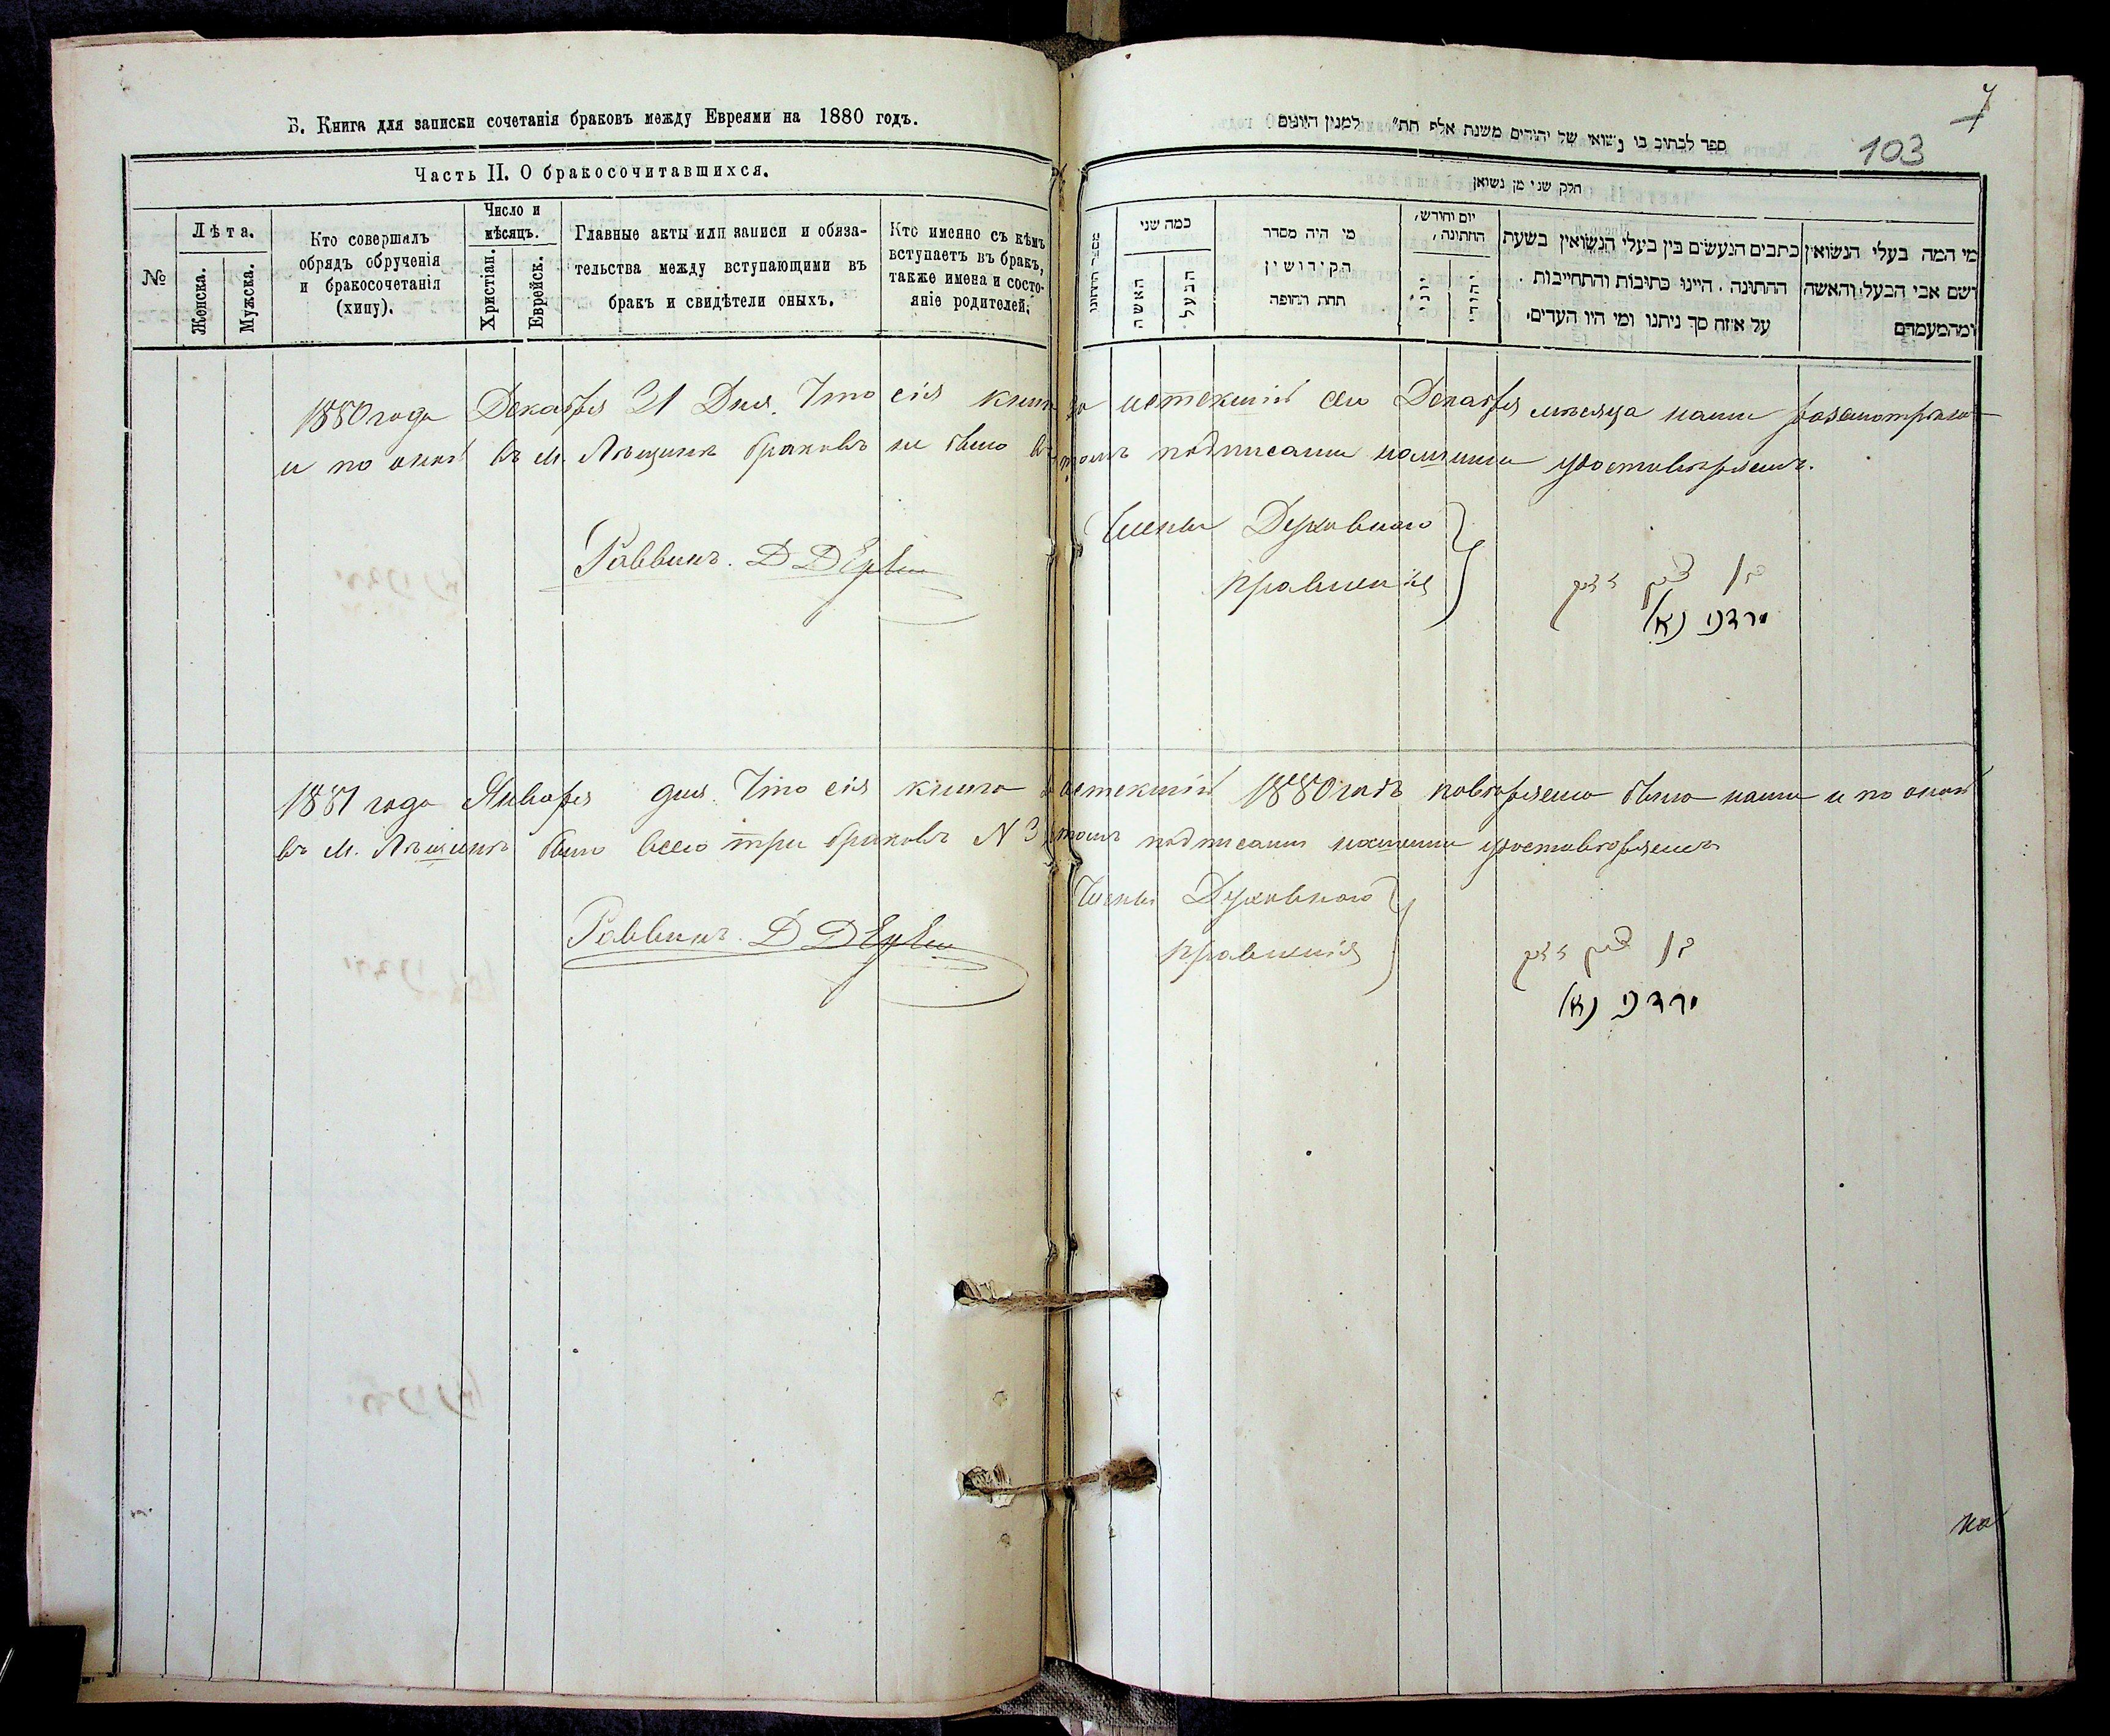 Б. Книга для записки сочетанія браковъ между Евреями на 1880 годъ.
Часть II. О бракосочитавшихся.
№
Лѣта.
Женска.
Мужска.
Кто совершалъ
обрядъ обрученія
и бракосочетанія
(хипу).
Число и
мѣсяцъ.
Христіан.
Еврейск.
Главные акты или записи и обяза-
тельства между вступающими въ
бракъ и свидѣтели оныхъ.
Кто именно съ кѣмъ
вступаетъ въ бракъ,
также имена и состо-
яніе родителей.
7
103
ספר לכתוב בו נשואי של יהודים משנת אלף תת״ למנין היונים
חלק שני מן נשואין
מי המה בעלי הנשואין
ושם אבי הבעל והאשה
ומהמעמדם
כתבים הנעשים בין בעלי הנשואין בשעת
החתונה . היינו כתובות והתחייבות .
על איזה סך ניתנו ומי היו העדים.
יום וחודש,
החתונה,
יהודי
יוני
מי היה מסדר
הקידושין
תחת החופה
כמה שני
הבעל
האשה
1880 года Декабря 31 Дня. Что сія книга за истекшій сей Декабрь мѣсяца нами разсмотрѣна
и по оной въ м. браковъ не было въ томъ подписами нашими удостовѣряемъ.
Раввинъ. Д
Члены Духовнаго
правленія
1881 года Января дня. Что сія книга за истекшій 1880 годъ повѣряема была нами и по оной
въ м. было всего три браковъ N 3 въ томъ подписами нашими удостовѣряемъ
Раввинъ. Д
Члены Духовнаго
правленія